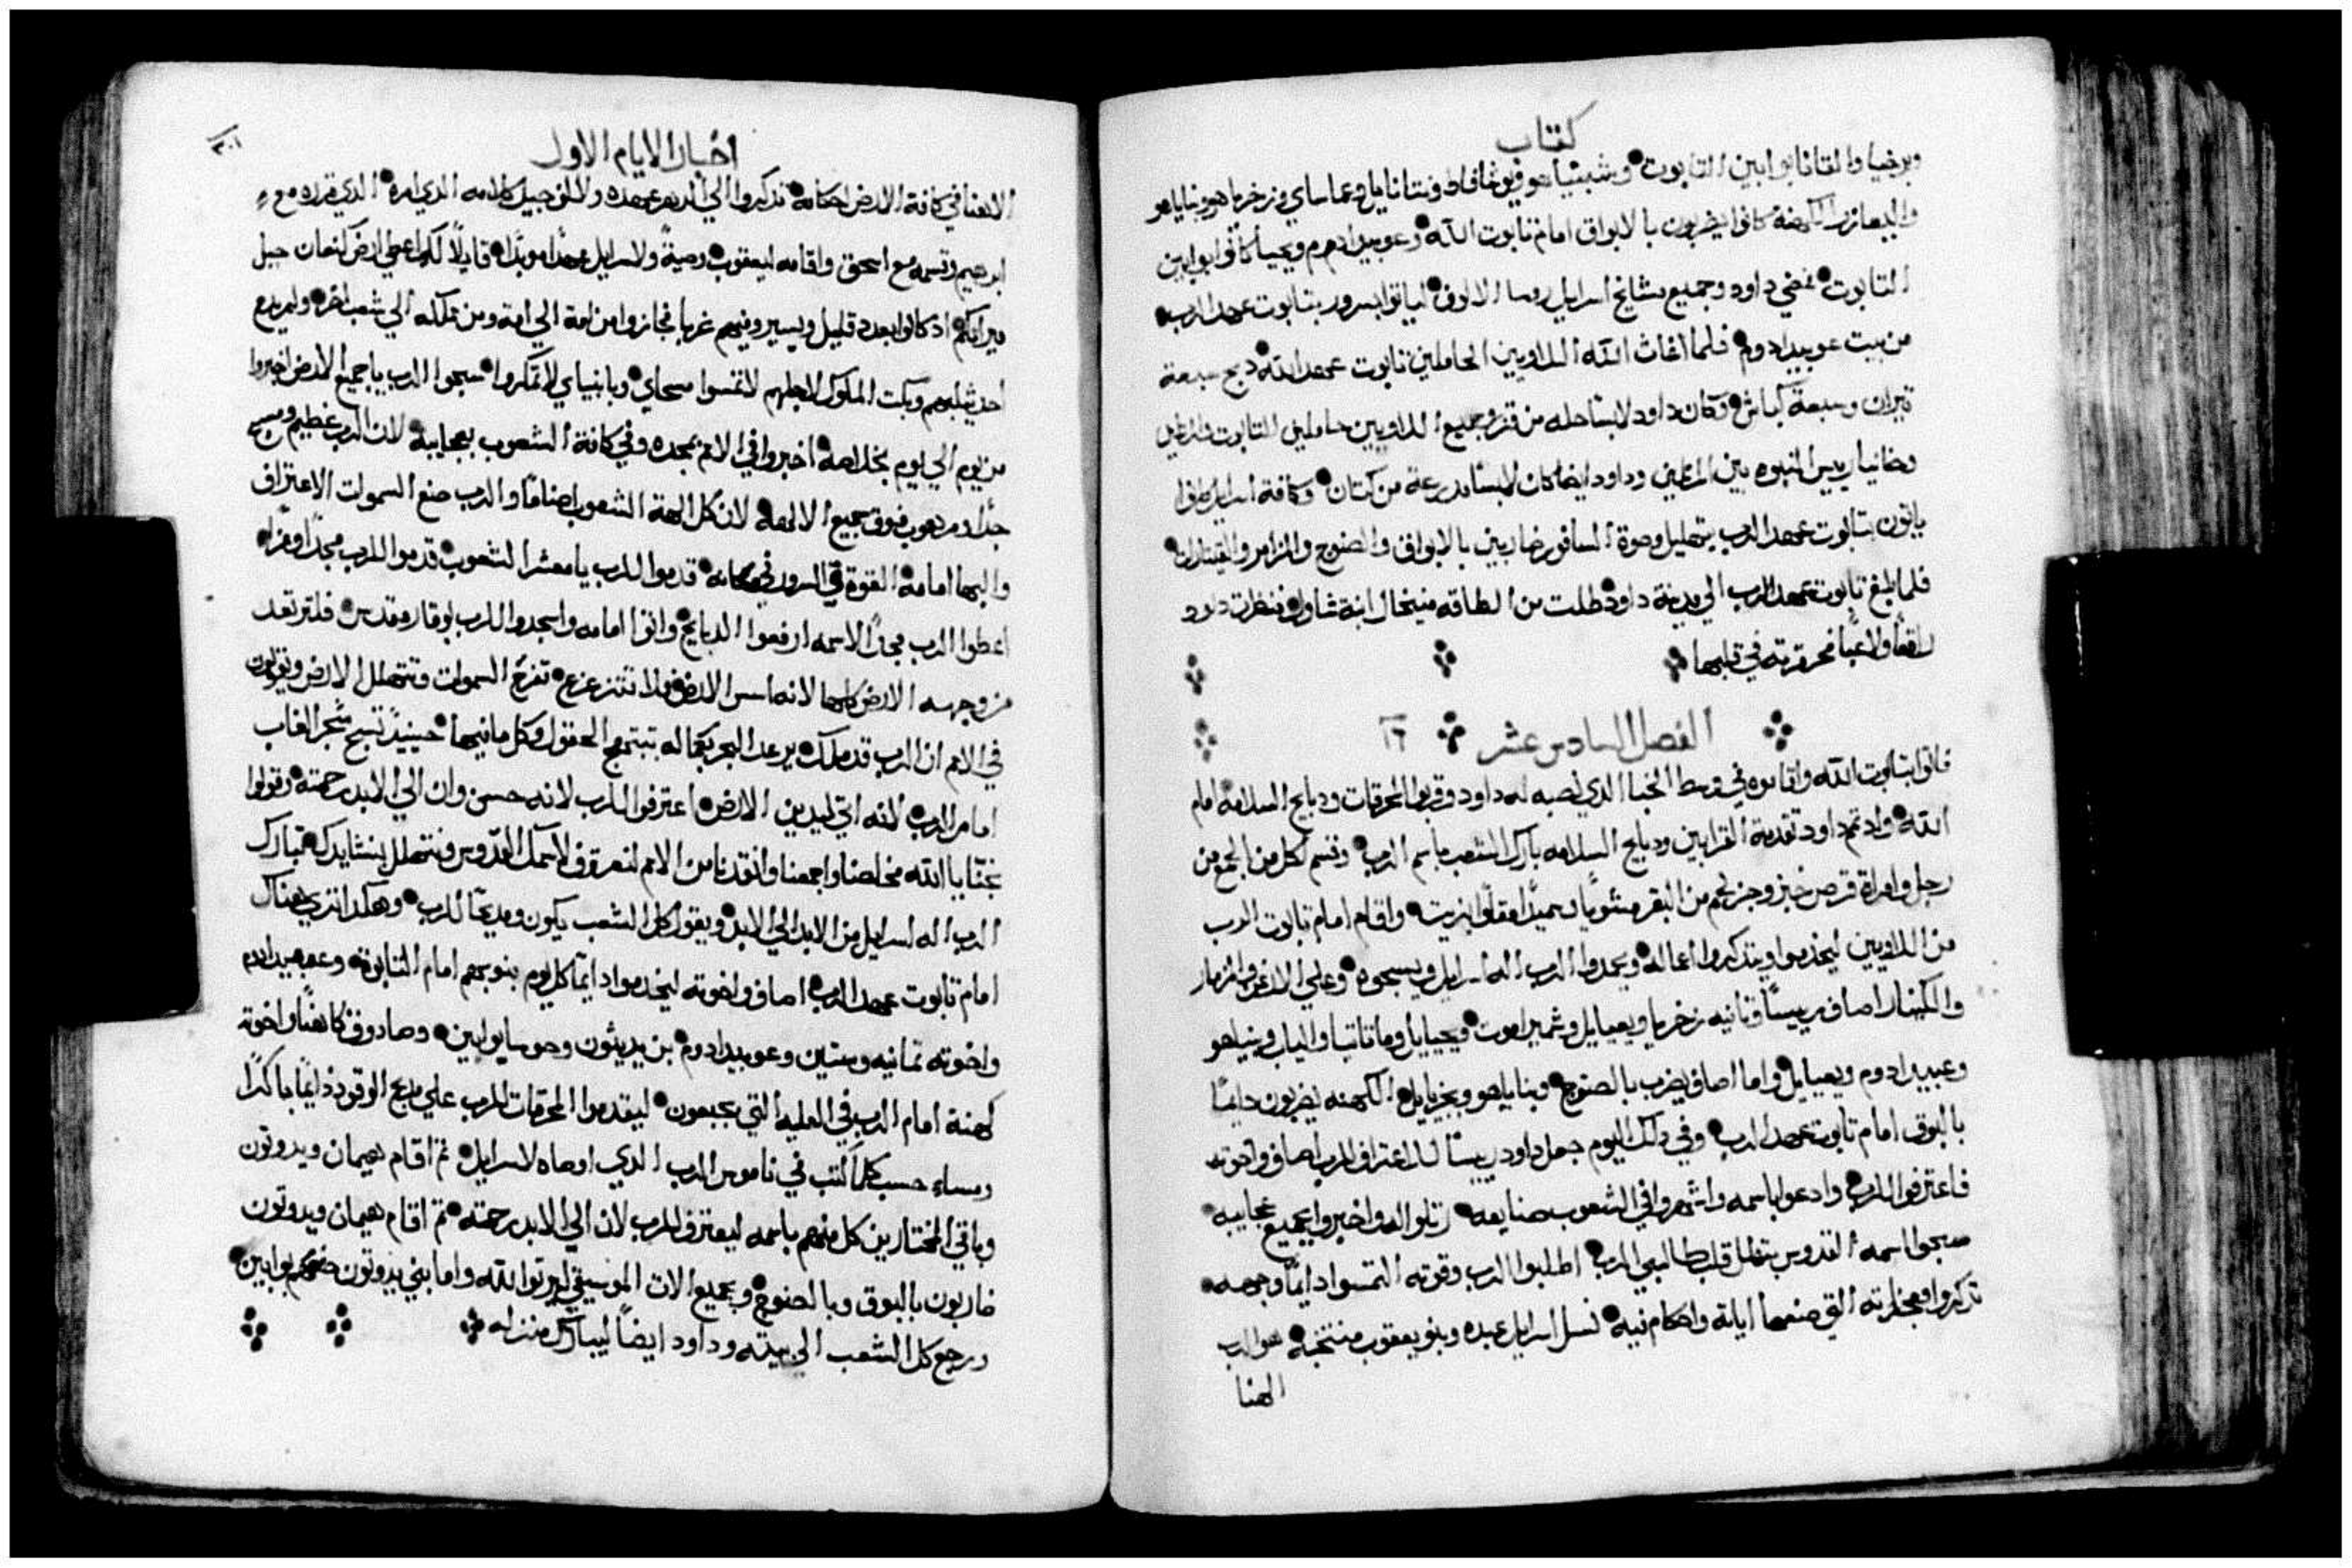 كتاب
وبرخيا والقانا بوابين التابوت وشبنيا هو ويوشافاط ونتانايل وعماساي وزخريا وبنايا هو
واليعازر الكهنة كانوا يضربون بالابواق امام تابوت الله وعوبيد ادوم ويحيا كانوا بوابين
التابوت فمضي داود وجميع مشايخ اسرايل روسا الالوف لياتوا بسرور بتابوت عهد الرب
من بيت عوبيد ادوم فلما اغاث الله اللاويين الحاملين تابوت عهد الله دبح سبعة
تيران وسبعة كباش وكان داود لابسا حله من قز وجميع اللاويين حاملين التابوت والمرتلين
وخانيا رييس النبوه بين المرتلين وداود ايضا كان لابسا مدرعة من كتان وكافة اسرايل
ياتون بتابوت عهد الرب بتهليل وصوة السافور ضاربين بالابواق والصنوج والمزامر والقيتارات
فلما بلغ تابوت عهد الرب الي مدينة داود طلت من الطاقه ميخال ابنة شاول فنظرت داود
راقصا ولاعبا فحقرته في قلبها
الفصل السادس عشر ١٦
فاتوا بتابوت الله واقاموه في وسط الخبا الدي نصبه له داود وقربوا المحرقات ودبايح السلامه امام
الله واد تم داود تقدمة القرابين ودبايح السلامه بارك الشعب باسم الرب وقسم لكل من الجمع من
رجل وامراة قرص خبز وجز لحم من البقر مشويا وسميدا مقلوا بزيت واقام امام تابوت الرب
من اللاويين ليخدموا ويتدكروا اعماله ويحمدوا الرب اله اسرايل ويسبحوه وعلي الارغن والمزمار
والكينار اصاف رييسا وتانيه زخريا ويعيايل وشميراموت ويحيايل وماتاتيا والياب وبنياهو
وعبيد ادوم ويعيايل واما اصاف يضرب بالصنوج وبناياهو ويحزيايل الكهنه يضربون دايما
بالبوق امام تابوت عهد الرب وفي دلك اليوم جعل داود رييسا للاعتراف للرب اصاف واخوته
فاعترفوا للرب وادعوا باسمه واشهروا في الشعوب صنايعه رتلوا له واخبروا بجميع عجايبه
سبحوا اسمه القدوس يتهلل قلب طالبي الرب اطلبوا الرب وقوته التمسوا دايما وجهه
تدكروا معجزاته التي صنعها اياته واحكام فيه نسل اسرايل عبده وبنو يعقوب منتخبه هو الرب
الهنا
اخبار الايام الاول
الاهنا في كافة الارض احكامه تدكروا الي الدهر عهده ولالف جيل كلامه الدي امره الدي قرره مع
ابرهيم وقسمه مع اسحق واقامه ليعقوب وصية ولاسرايل عهدا موبدا قايلا لك اعطي ارض كنعان حبل
ميراتكم اد كانوا بعدد قليل ويسير وفيهم غربا فجازوا من امة الي امة ومن مملكه الي شعب اخر ولم يدع
احد يثلبهم وبكت الملوك لاجلهم لا تمسوا مسحاي وبانبياي لا تمكروا سبحوا الرب يا جميع الارض اخبروا
من يوم الي يوم بخلاصه اخبروا في الامم بمجده وفي كافة الشعوب بعجايبه لان الرب عظيم ومسبح
جدا ومرهوب فوق جميع الالهه لان كل الهة الشعوب اصناما والرب صنع السموات الاعتراف
والبها امامه القوة والسرور في مكانه قدموا للرب يا معشر الشعوب قدموا للرب مجدا وعزا
اعطوا الرب مجدا لاسمه ارفعوا الدبايح واتوا امامه واسجدوا للرب بوقار مقدس فلترتعد
من وجهه الارض كلها لانه اسس الارض فلا تتزعزع تفرح السموات وتتهلل الارض ويقولون
في الامم ان الرب قد ملك يرعد البحر بكماله تبتهج الحقول وكل ما فيها حينيد تسبح شجر الغاب
امام الرب لانه اتي ليدين الارض اعترفوا للرب لانه حسن وان الي الابد رحمته وقولوا
نجنا يا الله مخلصنا واجمعنا وانقدنا من الامم لنعترف لاسمك القدوس ونتهلل بنشايدك تبارك
الرب اله اسرايل من الابد الي الابد ويقول كل الشعب يكون ومديحا للرب وهكدا ترك هناك
امام تابوت عهد الرب اصاف واخوته ليخدموا دايما كل يوم بنوبهم امام التابوت وعوبيد ادوم
واخوته تمانيه وستين وعوبيد ادوم بن يديثون وحوسا بوابين وصادوق كاهنا واخوته
كهنة امام الرب في العليه التي بجبعون ليقدموا المحرقات للرب علي مدبح الوقود دايما باكرا
ومساء حسب كلما كتب في ناموس الرب الدي اوصاه لاسرايل تم اقام هيمان ويدوتون
وباقي المختارين كل منهم باسمه ليعترف للرب لان الي الابد رحمته تم اقام هيمان ويدوتون
ضاربون بالبوق وبالصنوج وبجميع الات الموسيقي ليرتلوا لله واما بني يدوتون صيرهم بوابين
ورجع كل الشعب الي بيته وداود ايضا ليبارك منزله